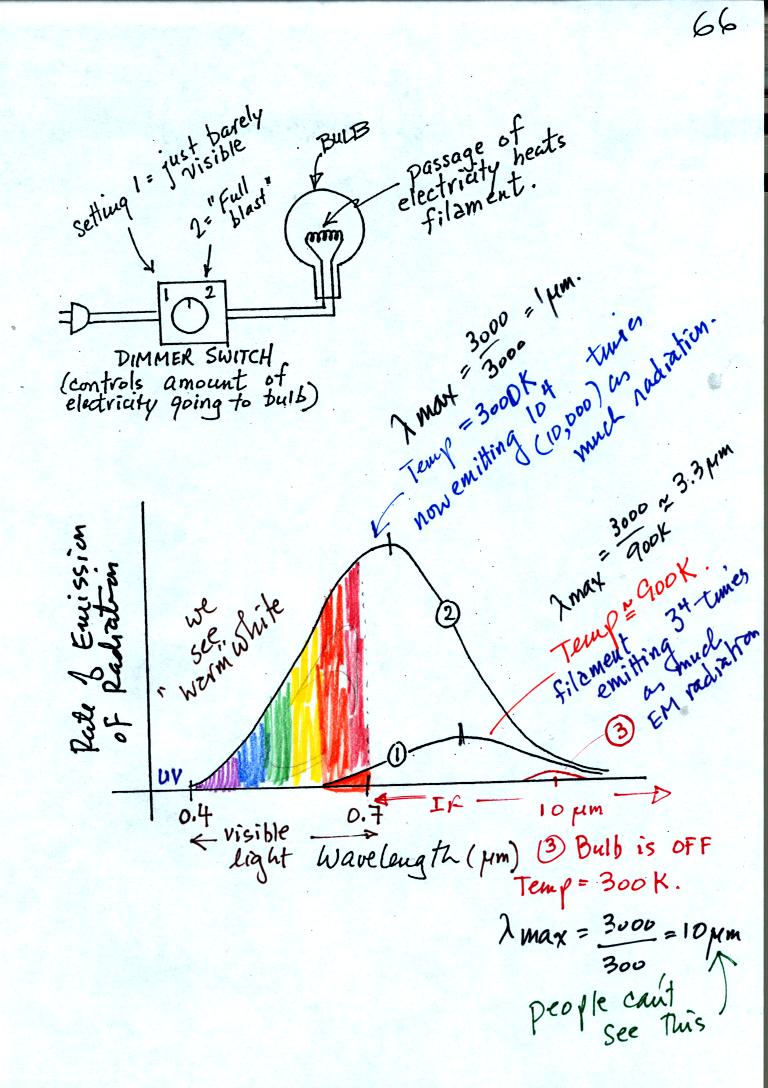 66
setting 1 = just barely
visible
2 = "Full
blast"
BULB
passage of
electricity heats
filament.
1 2
DIMMER SWITCH
(controls amount of
electricity going to bulb)
λmax = 3000/3000 = 1 μm.
Temp = 3000K
now emitting 10⁴ times
(10,000) as
much radiation.
λmax = 3000/900K ≈ 3.3 μm
Temp ≈ 900K.
filament
emitting 3⁴ times
as much
EM radiation
Rate of Emission
of Radiation
we
see
"warm" white
2
1
3
UV
0.4
0.7
IR
10 μm
← visible →
light
Wavelength (μm)
③ Bulb is OFF
Temp = 300K.
λmax = 3000/300 = 10 μm
people can't
see this